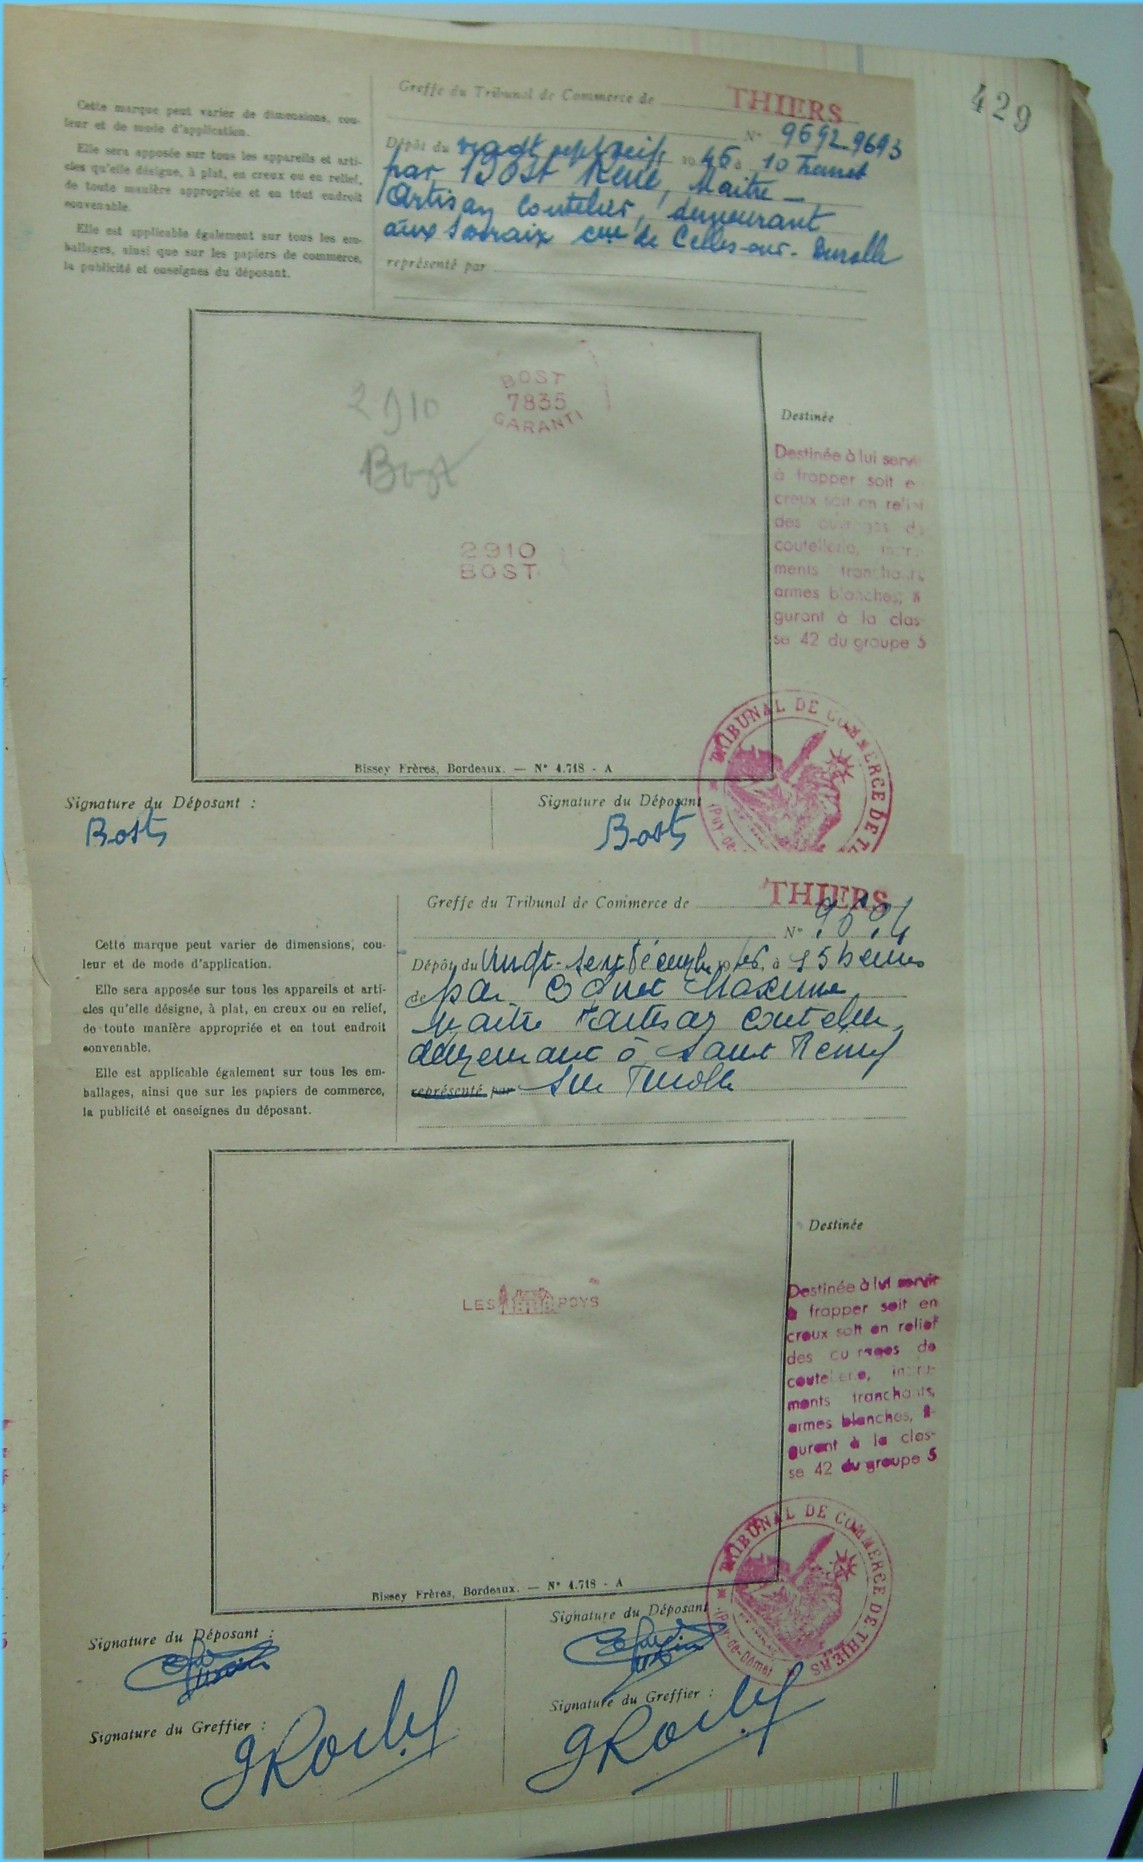 429
Cette marque peut varier de dimensions, cou-
leur et de mode d'application.
Elle sera apposée sur tous les appareils et arti-
cles qu'elle désigne, à plat, en creux ou en relief,
de toute manière appropriée et en tout endroit
convenable.
Elle est applicable également sur tous les em-
ballages, ainsi que sur les papiers de commerce,
la publicité et enseignes du déposant.
Greffe du Tribunal de Commerce de THIERS
N° 9692-9693
Dépôt du vingt sept 1946 à 10 heures
par BOST René, Maitre-
Artisan Coutelier, demeurant
cne de Celles-sur-Durolle
représenté par
BOST
7835
GARANTI
2910
Bost
2910
BOST
Destinée
Destinée à lui servir
à frapper soit e
creux soit en relief
des ouvrages de
coutellerie, instru-
ments tranchants,
armes blanches, fi-
gurant à la clas-
se 42 du groupe 5
Bissey Frères, Bordeaux. — N° 4.718 - A
TRIBUNAL DE COMMERCE DE
Signature du Déposant :
Bost
Signature du Déposant
Bost
Cette marque peut varier de dimensions, cou-
leur et de mode d'application.
Elle sera apposée sur tous les appareils et arti-
cles qu'elle désigne, à plat, en creux ou en relief,
de toute manière appropriée et en tout endroit
convenable.
Elle est applicable également sur tous les em-
ballages, ainsi que sur les papiers de commerce,
la publicité et enseignes du déposant.
Greffe du Tribunal de Commerce de THIERS
N° 9694
Dépôt du Vingt-sept Décembre 1946 à 15 heures
de par Maxime
maitre Artisan Coutelier,
demeurant à Saint Remy
représenté par sur Durolle
LES POYS
Destinée
Destinée à lui servir
à frapper soit en
creux soit en relief
des ouvrages de
coutellerie, instru-
ments tranchants,
armes blanches, fi-
gurant à la clas-
se 42 du groupe 5
Bissey Frères, Bordeaux. — N° 4.718 - A
TRIBUNAL DE COMMERCE DE THIERS
(Puy-de-Dôme)
Signature du Déposant :
Signature du Déposant
Signature du Greffier :
Signature du Greffier :